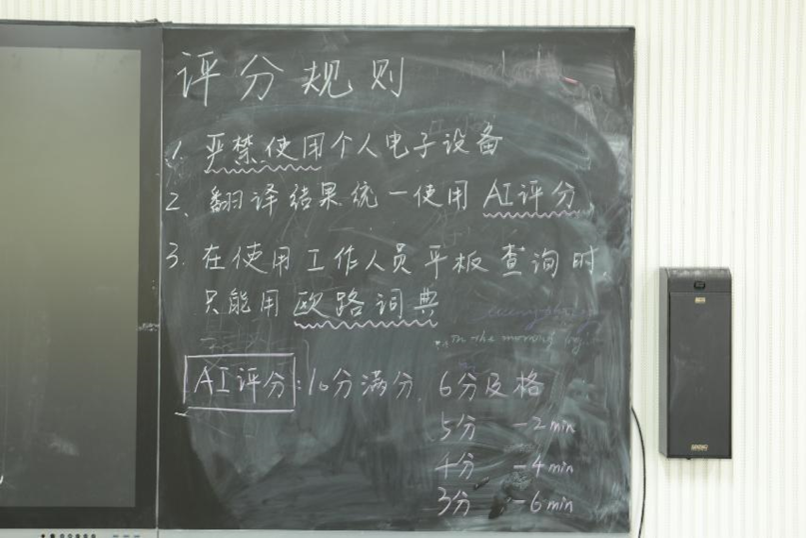 评分规则
1. 严禁使用个人电子设备
2、翻译结果统一使用AI评分.
3. 在使用工作人员平板查询时,
只能用欧路词典
In the morning
AI评分:10分满分, 6分及格
5分 -2min
4分 -4min
3分 -6min